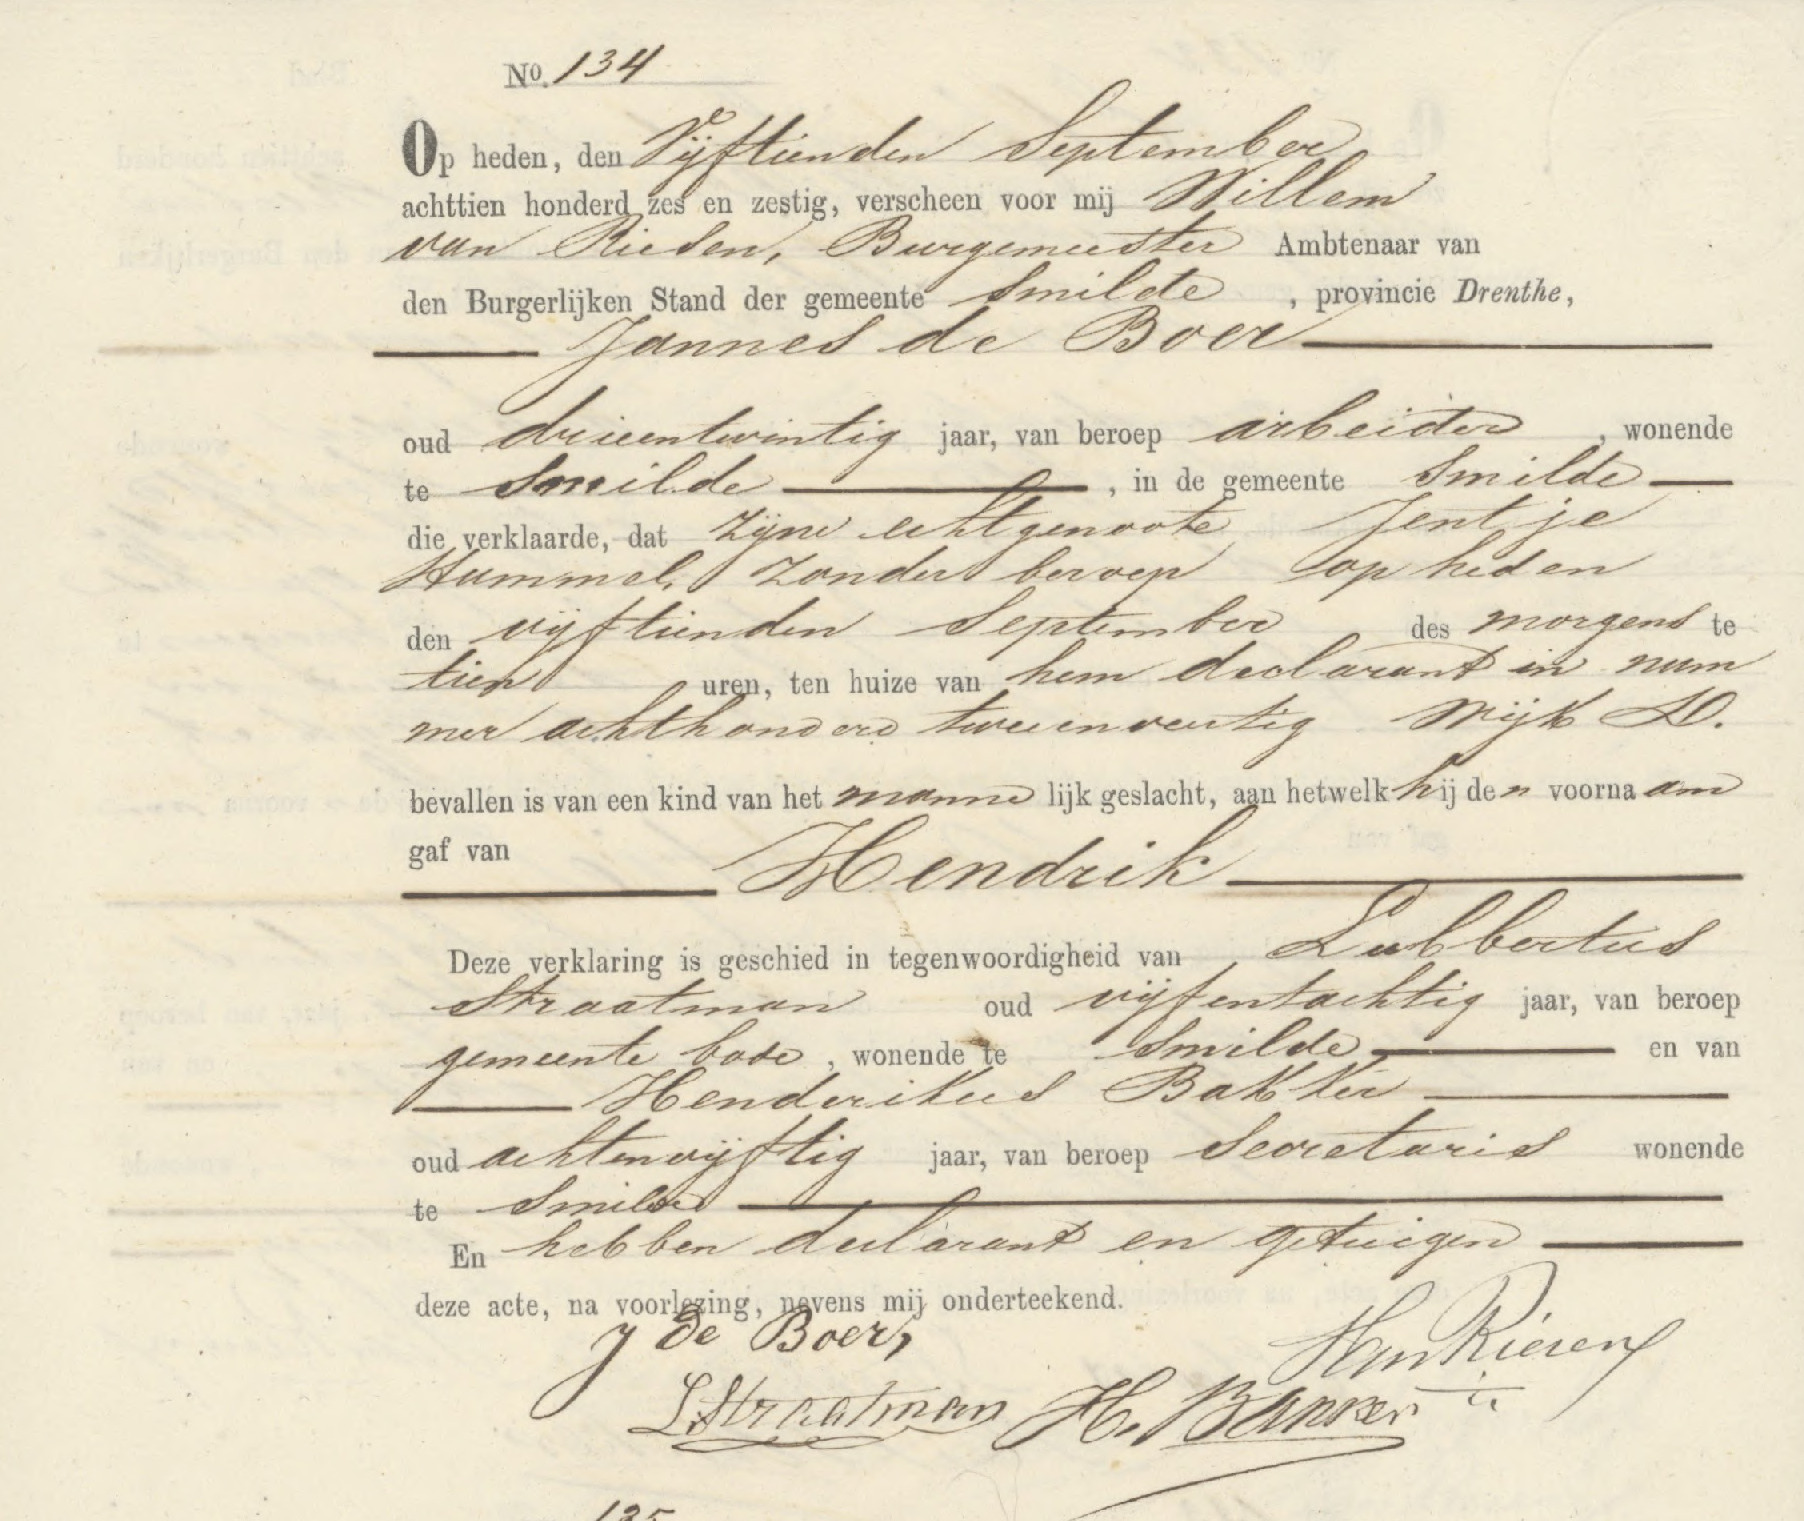 No. 134
Op heden, den Vijftienden September
achttien honderd zes en zestig, verscheen voor mij Willem
van Riesen, Burgemeester Ambtenaar van
den Burgerlijken Stand der gemeente Smilde , provincie Drenthe,
Jannes de Boer
oud drieentwintig jaar, van beroep arbeider , wonende
te Smilde , in de gemeente Smilde
die verklaarde, dat zijne echtgenoote Jentje
Hummel, zonder beroep op heden
den vijftienden September des morgens te
tien uren, ten huize van hem declarant in num
mer achthonderd tweeenveertig Wijk D.
bevallen is van een kind van het manne lijk geslacht, aan hetwelk hij den voornaam
gaf van Hendrik
Deze verklaring is geschied in tegenwoordigheid van Lubbertus
Straatman oud vijfentachtig jaar, van beroep
gemeente bode , wonende te Smilde en van
Henderikus Bakker
oud achtenvijftig jaar, van beroep Secretaris wonende
te Smilde
En hebben declarant en getuigen
deze acte, na voorlezing, nevens mij onderteekend.
J de Boer,
WvanRiesen
L Straatman H. Bakker
135